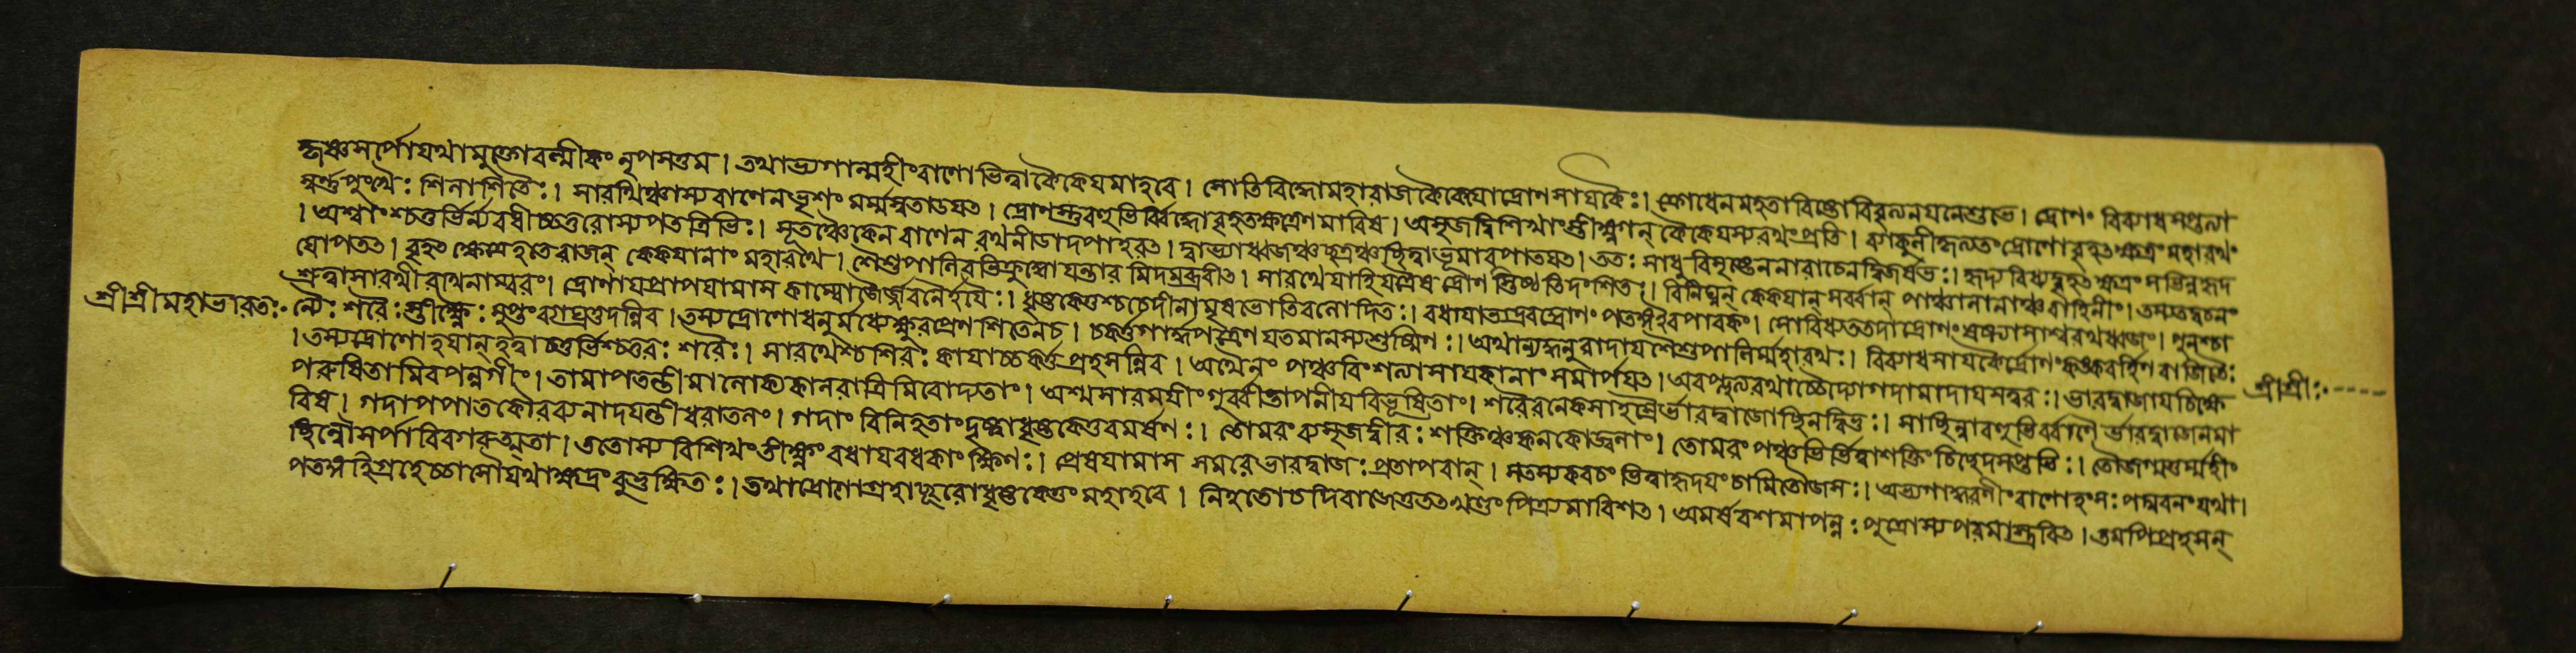 হ্ণশ্চসর্পোযথামুক্তোবল্মীকং নৃপসত্তম । তথাভ্যগান্মহীংবাণোভিত্বাকৈকেযমাহবে । সোতিবিদ্ধোমহারাজকৈকেযোদ্রোণসাযকৈঃ । ক্রোধেনমহতাবিষ্টোবিবৃত্যনযনেশুভে । দ্রোণং বিব্যাধসপ্তত্যা
স্বর্ণপুংখৈঃ শিলাশিতৈঃ । সারথিঞ্চাস্যবাণেনভৃশং মর্ম্মস্বতাডযত । দ্রোণস্তুবহুভির্ব্বিদ্ধোবৃহতক্ষত্রেণমারিষ । অসৃজদ্বিশিখাংস্তীক্ষ্ণান্ কৈকেযস্যরথংপ্রতি । ব্যাকুলীকৃত্যতংদ্রোণোবৃহতক্ষত্রং মহারথং
। অশ্বাংশ্চতুর্ভির্ন্যবধীচ্চতুরোস্যপতত্রিভিঃ । সূতঞ্চৈকেন বাণেন রথনীডাদপাহরত । দ্বাভ্যাংধ্বজঞ্চছত্রঞ্চছিত্বাভূমাবপাতযত । ততঃ সাধুবিসৃষ্টেননারাচেনদ্বিজর্ষভঃ । হৃদ্যবিধ্যদ্বৃহতক্ষত্রং সভিন্নহৃদ
যোপতত । বৃহত ক্ষেত্রেহতেরাজন্ কেকযানাং মহারথে । শৈশুপালিরভিক্রুদ্ধোযন্তার মিদমব্রবীত । সারথেযাহিযত্রৈষ দ্রোণ স্তিষ্ঠতিদংশিতঃ । বিনিঘ্নন্ কেকযান্ সর্ব্বান্ পাঞ্চালানাঞ্চবাহিনীং । তস্যতদ্বচনং
শ্রুত্বাসারথীরথিনাম্বরং । দ্রোণাযপ্রাপযামাস কাম্বোজৈর্জবনৈর্হযৈঃ । ধৃষ্টকেতুশ্চচেদীনামৃষভোতিবলোদিতঃ । বধাযাভ্যদ্রবদ্দ্রোণং পতঙ্গইবপাবকং । সোবিধ্যততদাদ্রোণংষষ্ট্যাসাশ্বরথধ্বজং । পুনশ্চা
শ্রীশ্রীমহাভারতঃ
ন্যৈঃ শরৈঃস্তীক্ষ্ণৈঃ সুপ্তংব্যাঘ্রতুদন্নিব । তস্যদ্রোণোধনুর্মধ্যেক্ষুরপ্রেণশিতেনচ । চকর্ত্তগার্দ্ধপত্রেণযতমানস্যশুষ্মিণঃ । অথান্যদ্ধনুরাদাযশৈশুপালির্ম্মহারথঃ । বিব্যাধসাযকৈর্দ্রোণংকঙ্কবর্হিণবাজিতৈঃ
শ্রীশ্রীঃ
। তস্যদ্রোণোহযান্হত্বাচতুর্ভিশ্চতুরঃ শরৈঃ । সারথেশ্চশিরঃ কাযাচ্চকর্ত্তপ্রহসন্নিব । অথৈনং পঞ্চবিংশত্যাসাযকানাং সমার্পযত । অবপ্লুত্যরথাচ্চৈদ্যোগদামাদাযসত্বরঃ । ভারদ্বাজাযচিক্ষে
পরুষিতামিবপন্নগীং । তামাপতন্তীমালোক্যকালরাত্রিমিবোদ্যতাং । অশ্মসারমযীংগুর্ব্বীন্তাপনীযবিভূষিতাং । শরৈরনেকসাহস্রৈর্ভারদ্বাজোচ্ছিনদ্বিভুঃ । সাছিন্নাবহুভির্ব্বাণৈ র্ভারদ্বাজেনমা
বিষ । গদাপপাতকৌরব্যনাদযন্তীধরাতলং । গদাং বিনিহতাংদৃষ্ট্বাধৃষ্টকেতুরমর্ষণঃ । তোমরং ব্যসৃজদ্বীরঃ শক্তিঞ্চকনকোজ্বলাং । তোমরং পঞ্চভির্ভিত্বাশক্তিংচিচ্ছেদসপ্তভিঃ । তৌজগ্মতুর্ম্মহীং
ছিন্নৌসর্পাবিবগরুত্মতা । ততোস্যবিশিখংতীক্ষ্ণংবধাযবধকাংক্ষিণঃ । প্রেষযামাস সমরেভারদ্বাজঃ প্রতাপবান্ । সতস্যকবচং ভিত্বাহৃদযংচামিতৌজসঃ । অভ্যগাদ্ধরণীংবাণোহংসঃ পদ্মবনংযথা।
পতঙ্গংহিগ্রহেচ্চাসৌযথাক্ষুদ্রংবুভুক্ষিতঃ । তথাদ্রোণোগ্রহাচ্ছূরোধৃষ্টকেতুং মহাহবে । নিহতেচেদিরাজেতুততখণ্ডং পিত্র্যমাবিশত । অমর্ষবশমাপন্নঃ পুত্রোস্যপরমাস্ত্রবিত । তমপিপ্রহসন্